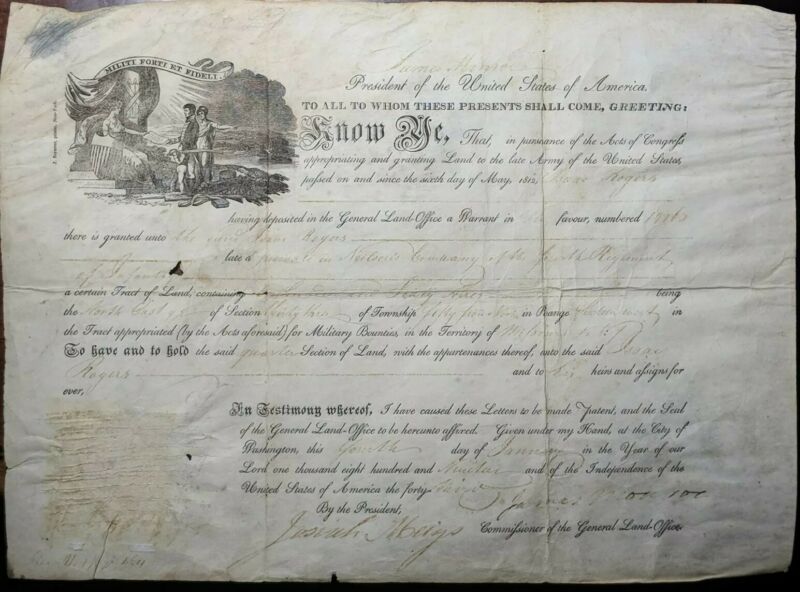 MILITI FORTI ET FIDELI.
James Monroe
President of the United States of America.
TO ALL TO WHOM THESE PRESENTS SHALL COME, GREETING:
Know Ye, That, in pursuance of the Acts of Congress
appropriating and granting Land to the late Army of the United States,
passed on and since the sixth day of May, 1812, Isaac Rogers
having deposited in the General Land-Office a Warrant in his favour, numbered
there is granted unto the said Isaac Rogers
late a private in Neilson's Company of the Regiment
of Infantry
a certain Tract of Land, containing being
the North East qr of Section thirty three of Township fifty four North in Range west in
the Tract appropriated (by the Acts aforesaid) for Military Bounties, in the Territory of Missouri
To have and to hold the said quarter Section of Land, with the appurtenances thereof, unto the said Isaac
Rogers and to his heirs and assigns for
ever,
In Testimony whereof, I have caused these Letters to be made Patent, and the Seal
of the General Land-Office to be hereunto affixed. Given under my Hand, at the City of
Washington, this fourth day of January in the Year of our
Lord one thousand eight hundred and Nineteen and of the Independence of the
United States of America the forty-third
James Monroe
By the President,
Josiah Meigs Commissioner of the General Land-Office.